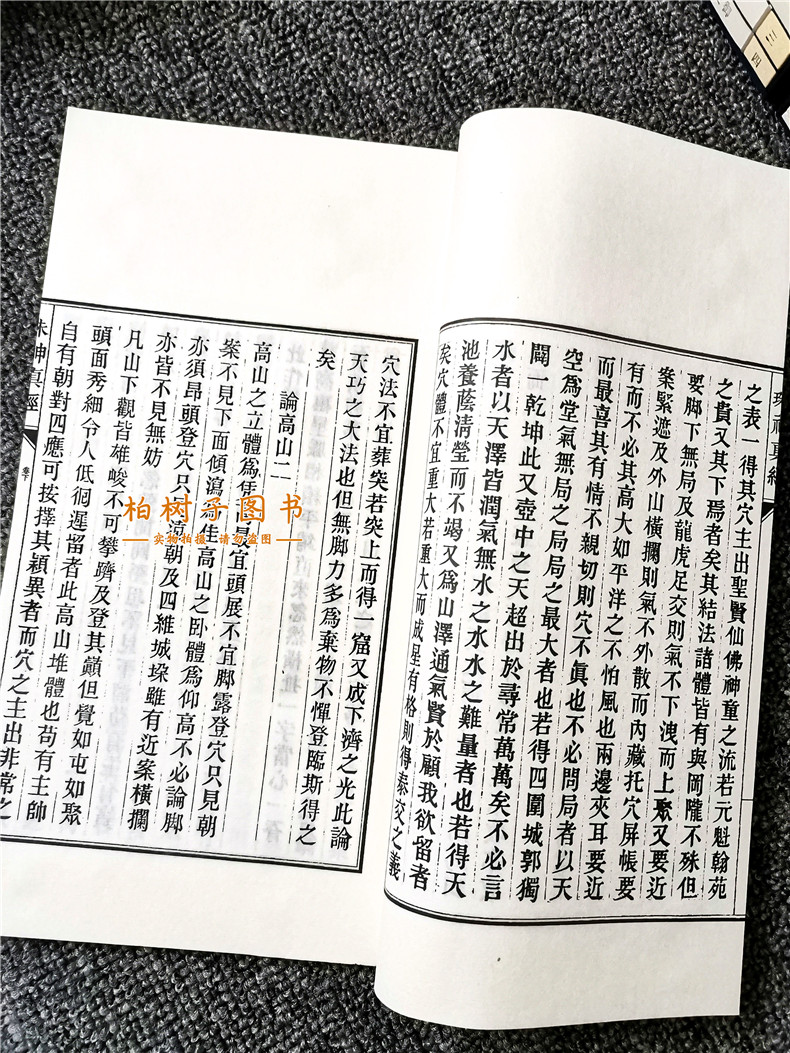 之表一得其穴主出聖賢仙佛神童之流若元魁翰苑
之貴又其下焉者矣其結法諸體皆有與岡隴不殊但
要脚下無局及龍虎足交則氣不下洩而上聚又要近
案緊遮及外山橫攔則氣不外散而內藏托穴屏帳要
有而不必其高大如平洋之不怕風也兩邊夾耳要近
而最喜其有情不親切則穴不眞也不必問局者以天
空爲堂氣無局之局局之最大者也若得四圍城郭獨
闢一乾坤此又壺中之天超出於尋常萬萬矣不必言
水者以天澤皆潤氣無水之水水之難量者也若得天
池養蔭清瑩而不竭又爲山澤通氣賢於顧我欲留者
矣穴體不宜重大若重大而成星有格則得泰交之義
穴法不宜葬突若突上而得一窩又成下濟之光此論
天巧之大法也但無脚力多爲棄物不憚登臨斯得之
矣
論高山二
高山之立體爲宜頭展不宜脚露登穴只見朝
案不見下面傾瀉爲佳高山之卧體爲仰高不必論脚
亦須昂頭登穴只朝及四維城垜雖有近案橫攔
亦皆不見無妨
凡山下觀皆雄峻不可攀躋及登其巔但覺如屯如聚
頭面秀細令人低徊遲留者此高山堆體也苟有主帥
自有朝對四應可按擇其穎異者而穴之主出非常之
神眞經
卷下
柏树子图书
实物拍摄 请勿盗图
四